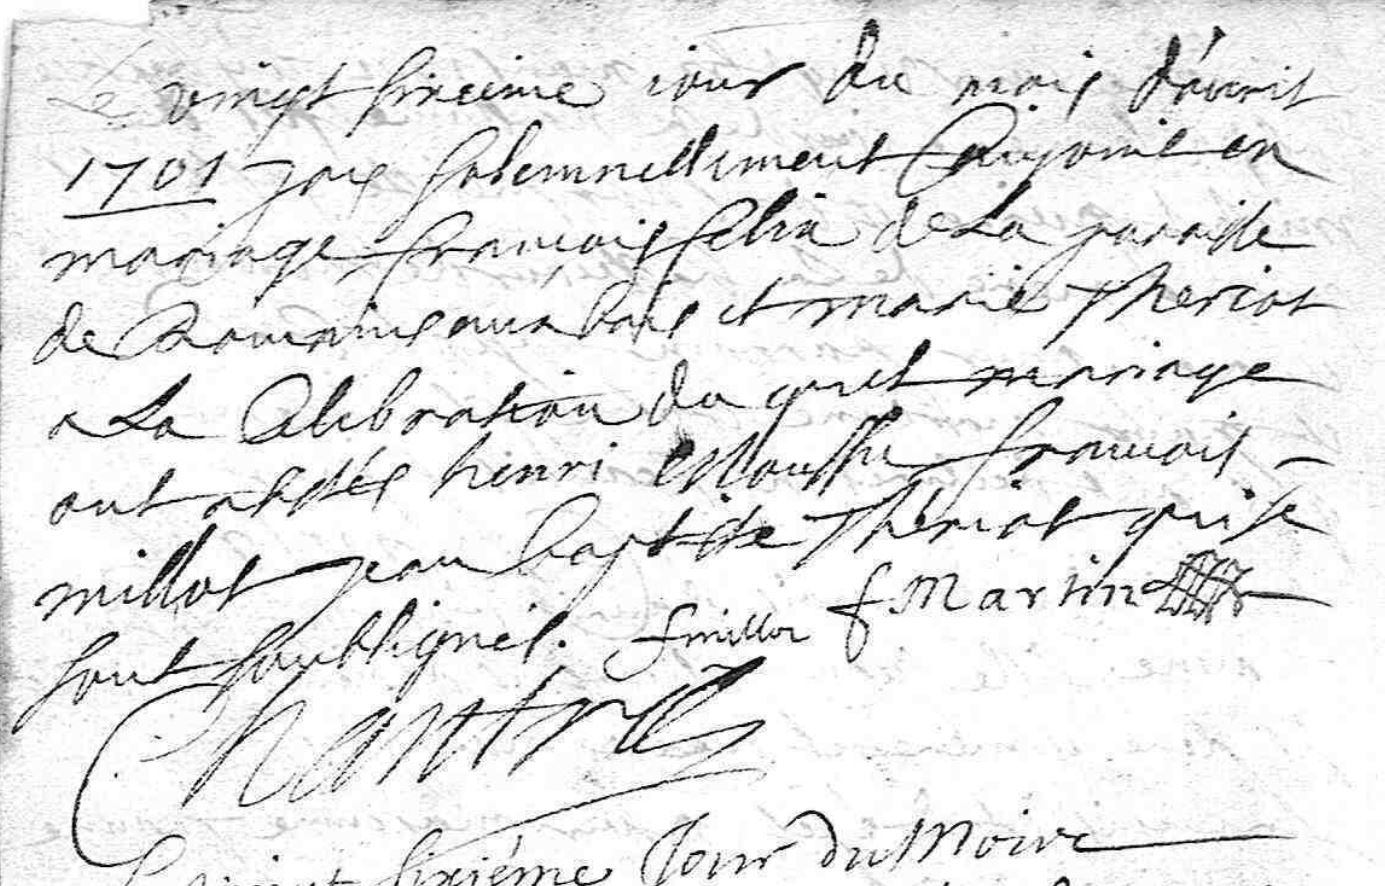 Le vingt sixieme iour du mois d'avril
1701 jay solemnellement Conjoint en
mariage francois felix de La paroisse
de et marie Theriot
a La Celebration du quel mariage
ont assistés henri francois -
millot jean baptiste Theriot qui se
sont soubsignés. f millot f Martin
Chantrel
vingt sixiéme Jour du Mois de